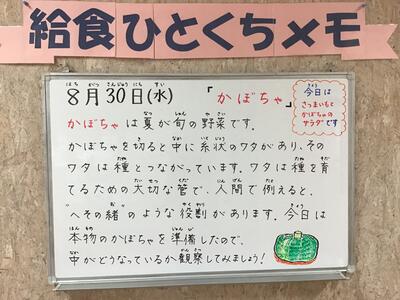 給食ひとくちメモ
8月30日(水)
「かぼちゃ」
今日は
さつまいもと
かぼちゃの
サラダです
かぼちゃは夏が旬の野菜です。
かぼちゃを切ると中に糸状のワタがあり、その
ワタは種とつながっています。ワタは種を育
てるための大切な管で、人間で例えると、
"へその緒"のような役割があります。今日は
本物のかぼちゃを準備したので、
中がどうなっているか観察してみましょう!